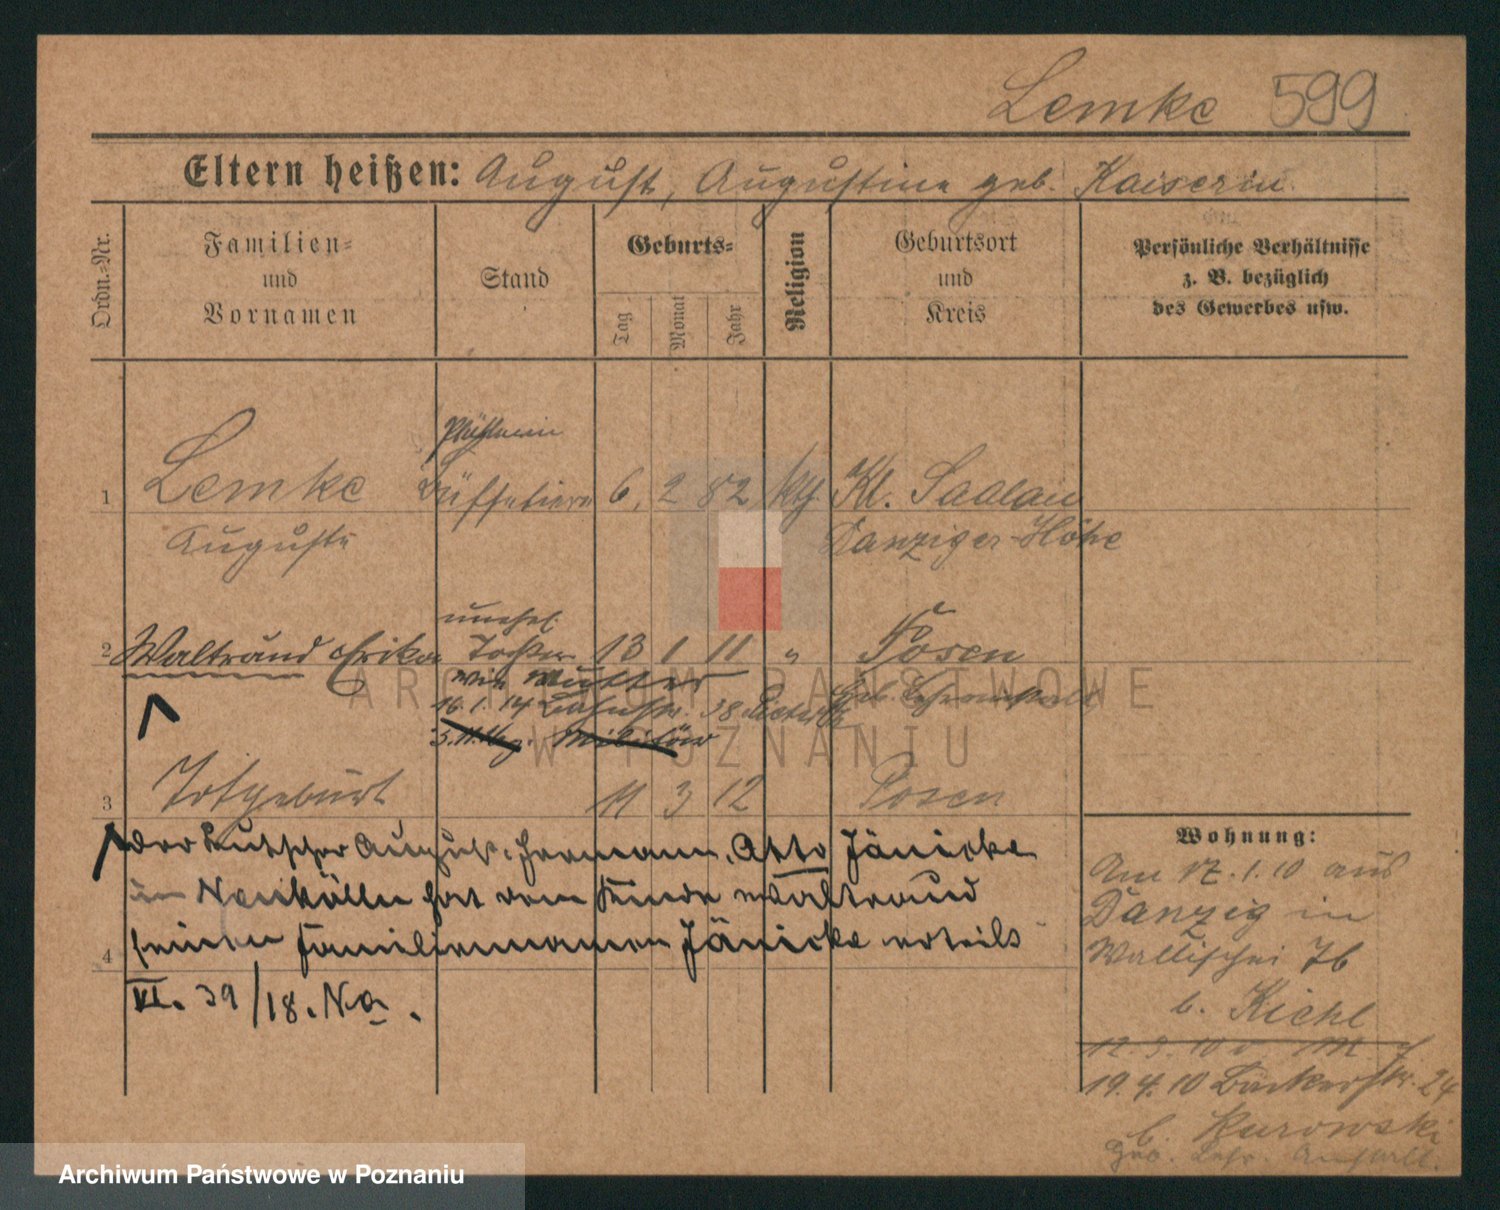 Lemke 599
Eltern heißen: August, Augustine geb. Kaiserin
Ordn.-Nr.
Familien-
und
Vornamen
Stand
Geburts-
Tag
Monat
Jahr
Religion
Geburtsort
und
Kreis
Persönliche Verhältnisse
z. B. bezüglich
des Gewerbes usw.
1 Lemke Büffetiere 6. 2 82 kth. Kl. Saalau
Auguste Danziger-Höhe
unehel.
2 Waltraud Erika Tochter 13 1 11 " Posen
wie Mutter
16.1.14 38
3 Totgeburt 11 3 12 Posen
der August Hermann Otto Jänicke
in Neukölln hat dem Kinde Waltraud
seinen Familiennamen Jänicke erteilt
4
VI. 39/18. Na.
Wohnung:
Am 17.1.10 aus
Danzig in
Wallischei 76
b. Kiehl
19.4.10 Bäckerstr. 24
b. Kurowski
ARCHIWUM PAŃSTWOWE
W POZNANIU
Archiwum Państwowe w Poznaniu